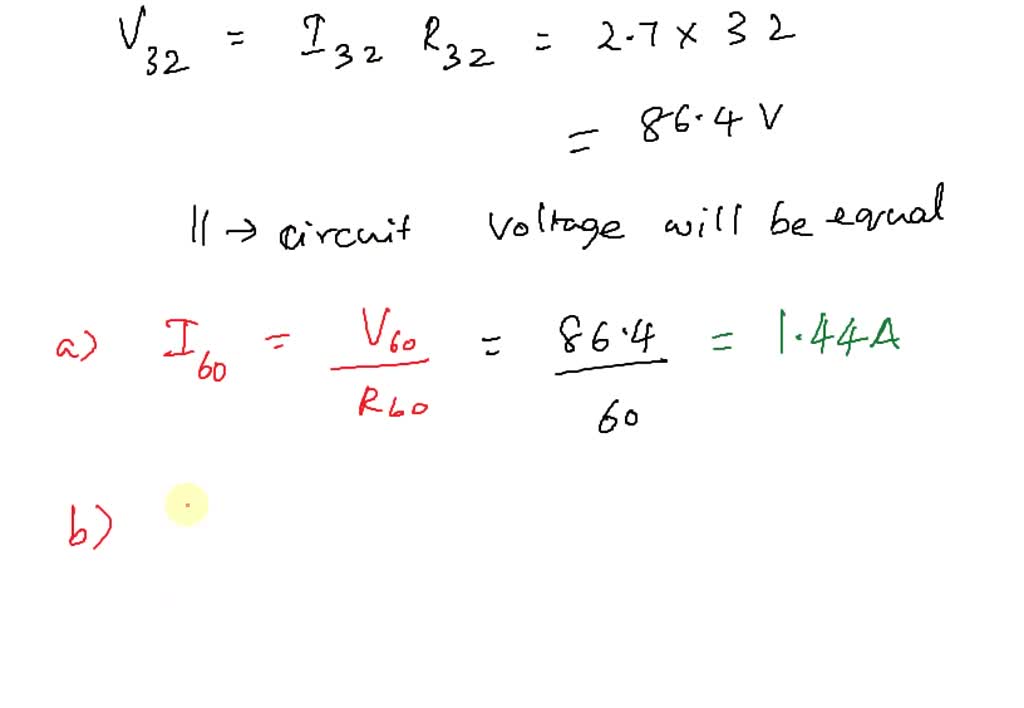 V32 = I32 R32 = 2.7 × 32
= 86.4 V
|| → circuit voltage will be equal
a) I60 = V60 / R60 = 86.4 / 60 = 1.44A
b)